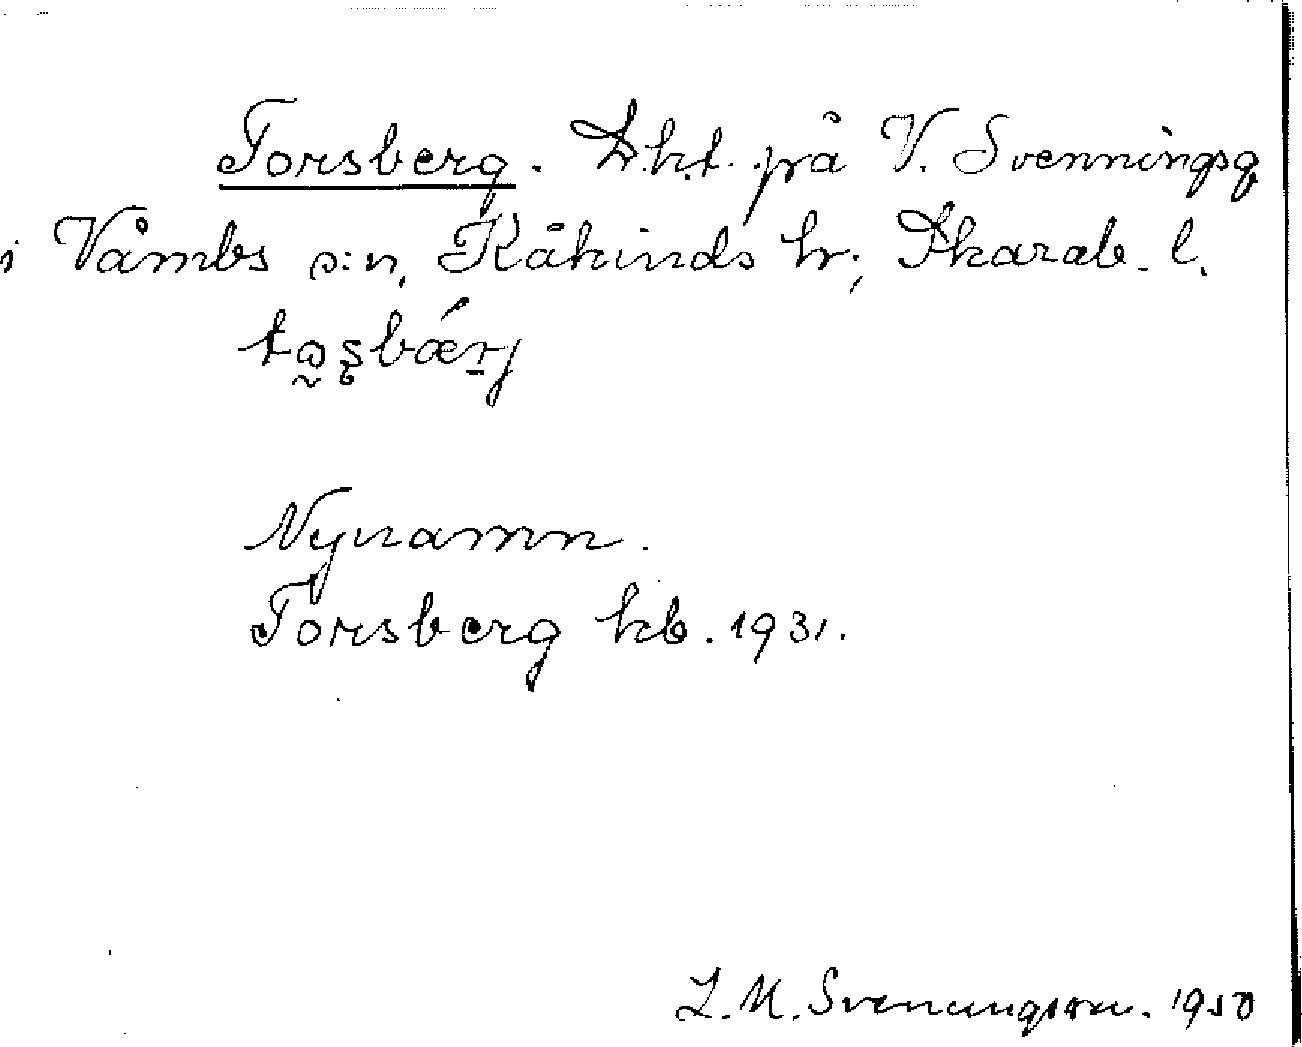 Torsberg. Lht. på V. Svenningsg
i Våmbs s:n, Kåkinds hr; Skarab. l.
Nynamn.
Torsberg kb. 1931.
L.M. Svenungsson. 1950